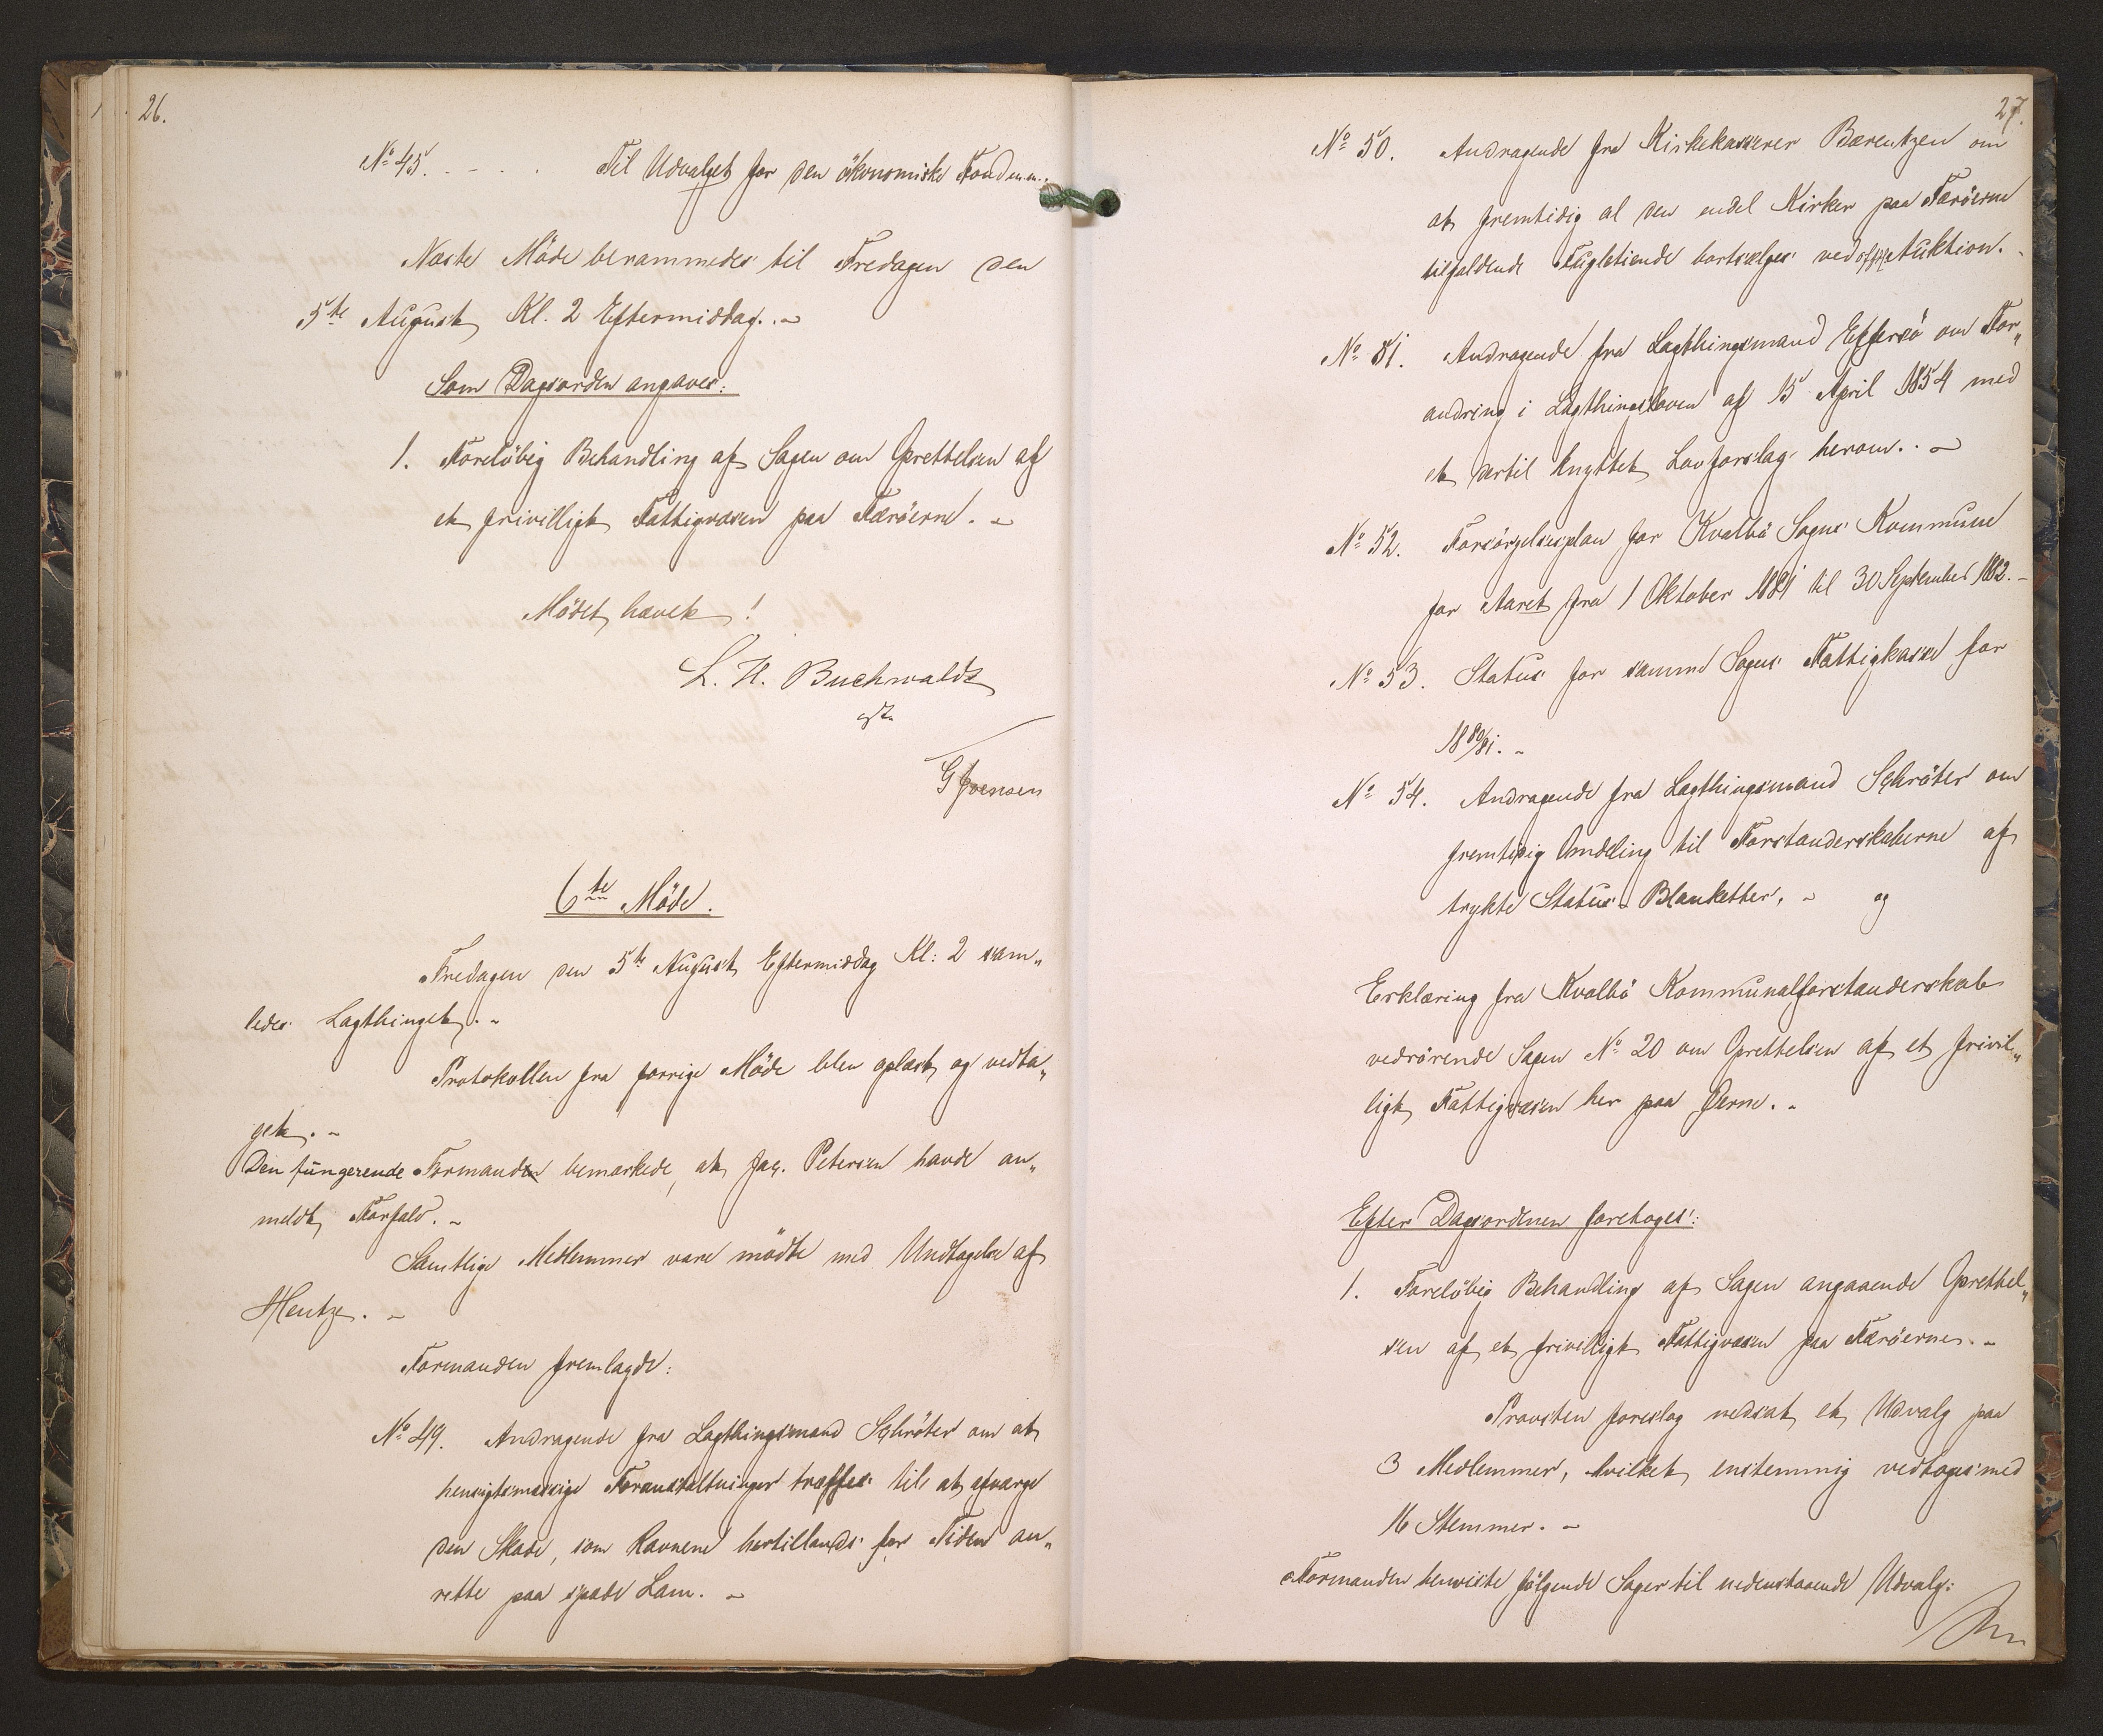 26.
No 45. - - . . Til Udvalget for den økonomiske Fond m.m.
Næste Møde berammedes til Fredagen den
5te August Kl. 2 Eftermiddag. -
Som Dagsorden angaves:
1. Foreløbig Behandling af Sagen om Oprettelsen af
et frivilligt Fattigvæsen paa Færøerne. -
Mødet hævet!
L. H. Buchwaldt
cst.
G Joensen
6te Møde.
Fredagen den 5te August Eftermiddag Kl: 2 sam„
ledes Lagthinget. -
Protokollen fra forrige Møde blev oplæst og vedta„
get. -
Den fungerende Formanden bemærkede, at Jac. Petersen havde an„
meldt Forfald. -
Samtlige Medlemmer vare mødte med Undtagelse af
Hentze. -
Formanden fremlagde:
No 49. Andragende fra Lagthingsmand Schrøter om at
hensigtsmæssige Foranstaltninger træffes til at afværge
den Skade, som Ravnene hertillands for Tiden an„
rette paa spæde Lam. -
27.
No 50. Andragende fra Kirkekasserer Bærentzen om
at fremtidig al den endel Kirker paa Færøerne
tilfaldende Fugletiende bortsælges ved off: Auktion.
No 51. Andragende fra Lagthingsmand Effersø om For„
andring i Lagthingsloven af 15 April 1854 med
et dertil knyttet Lovforslag herom. -
No 52. Forsørgelsesplan for Kvalbø Sogns Kommune
for Aaret fra 1 Oktober 1881 til 30 September 1882. -
No 53. Status for samme Sogns Fattigkasse for
1880/81. -
No 54. Andragende fra Lagthingsmand Schrøter om
fremtidig Omdeling til Forstanderskaberne af
trykte Status-Blanketter. - og
Erklæring fra Kvalbø Kommunalforstanderskab
vedrørende Sagen No 20 om Oprettelsen af et frivil„
ligt Fattigvæsen her paa Øerne. -
Efter Dagsordenen foretoges:
1. Foreløbig Behandling af Sagen angaaende Oprettel„
sen af et frivilligt Fattigvæsen paa Færøerne. -
Provsten foreslog nedsat et Udvalg paa
3 Medlemmer, hvilket enstemmig vedtoges med
16 Stemmer. -
Formanden henviste følgende Sager til nedenstaaende Udvalg: